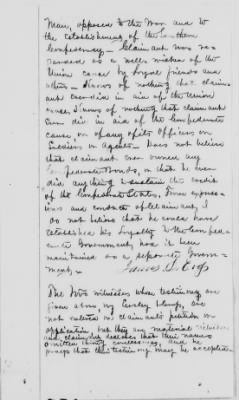 Man, opposed to the War and to
the establishment of the Southern
Confederacy — Claimant was re-
garded as a well wisher of the
Union cause by loyal friends and
others — Knows of nothing that claim-
ant ever did in aid of the Union
cause. Knows of nothing that claimant
ever did in aid of the Confederate
cause or of any of its officers or
Soldiers or Agents — Does not believe
that claimant ever owned any
Confederate Bonds, or that he ever
did anything to sustain the credit
of the Confederate States, From expres-
sions and conduct of claimant, I
do not believe that he could have
established his loyalty to the Confed-
erate Government, had it been
maintained as a separate Govern-
ment —
James
The two witnesses whose testimony are
given above by
not named in claimants petition or
application but they are material witnesses
and claimant declares that their names
omitted and he
prays that their testimony may be accepted